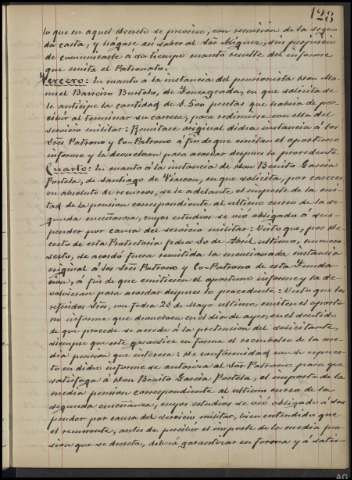 128
lo que en aquel decreto se previno, con remisión de la segun-
da carta, y hágase así saber al Sor. Míguez, sin perjuicio
de comunicarle a su tiempo cuanto resulte del informe
que emita el Patronato.
Tercero: En cuanto á la instancia del pensionista Don Ma-
nuel Barreiro Bustelo, de Fonsagrada, en que solicita se
le anticipe la cantidad de 1.500 pesetas que habría de per-
cibir al terminar su carrera, para redimirse con ella del
servicio militar: Remítase original dicha instancia á los
Sres. Patrono y Co-Patrono á fin de que emitan el oportuno
informe y la devuelvan para acordar después lo procedente.
Cuarto: En cuanto a la instancia de Don Benito García
Portela, de Santiago de Viascon, en que solicita, por carecer
en absoluto de recursos, se le adelante el importe de la mi-
tad de la pensión correspondiente al último curso de la se-
gunda enseñanza, cuyos estudios se vió obligado á sus-
pender por causa del servicio militar: Visto que, por de-
creto de este Protectorado fecha 30 de Abril último, número
sexto, se acordó fuera remitida la mencionada instancia
original á los Sres. Patrono y Co-Patrono de esta Funda-
ción, á fin de que emitiesen el oportuno informe y la de-
volvieran para acordar después lo procedente: Visto que los
referidos Sres., con fecha 28 de Mayo último, emiten el oportu-
no informe que devuelven en el día de ayer, en el sentido
de que procede se acceda á la pretensión del solicitante,
siempre que este garantice en forma el reembolso de la me-
dia pensión que interesa: De conformidad con lo expues-
to en dicho informe se autoriza al Sor. Patrono para que
satisfaga á Don Benito García Portela, el importe de la
media pensión correspondiente al último curso de la
segunda enseñanza, cuyos estudios se vió obligado á sus-
pender por causa del servicio militar, bien entendido que
el recurrente, antes de percibir el importe de la media pen-
sión que se decreta, deberá garantizar en forma y á satis-